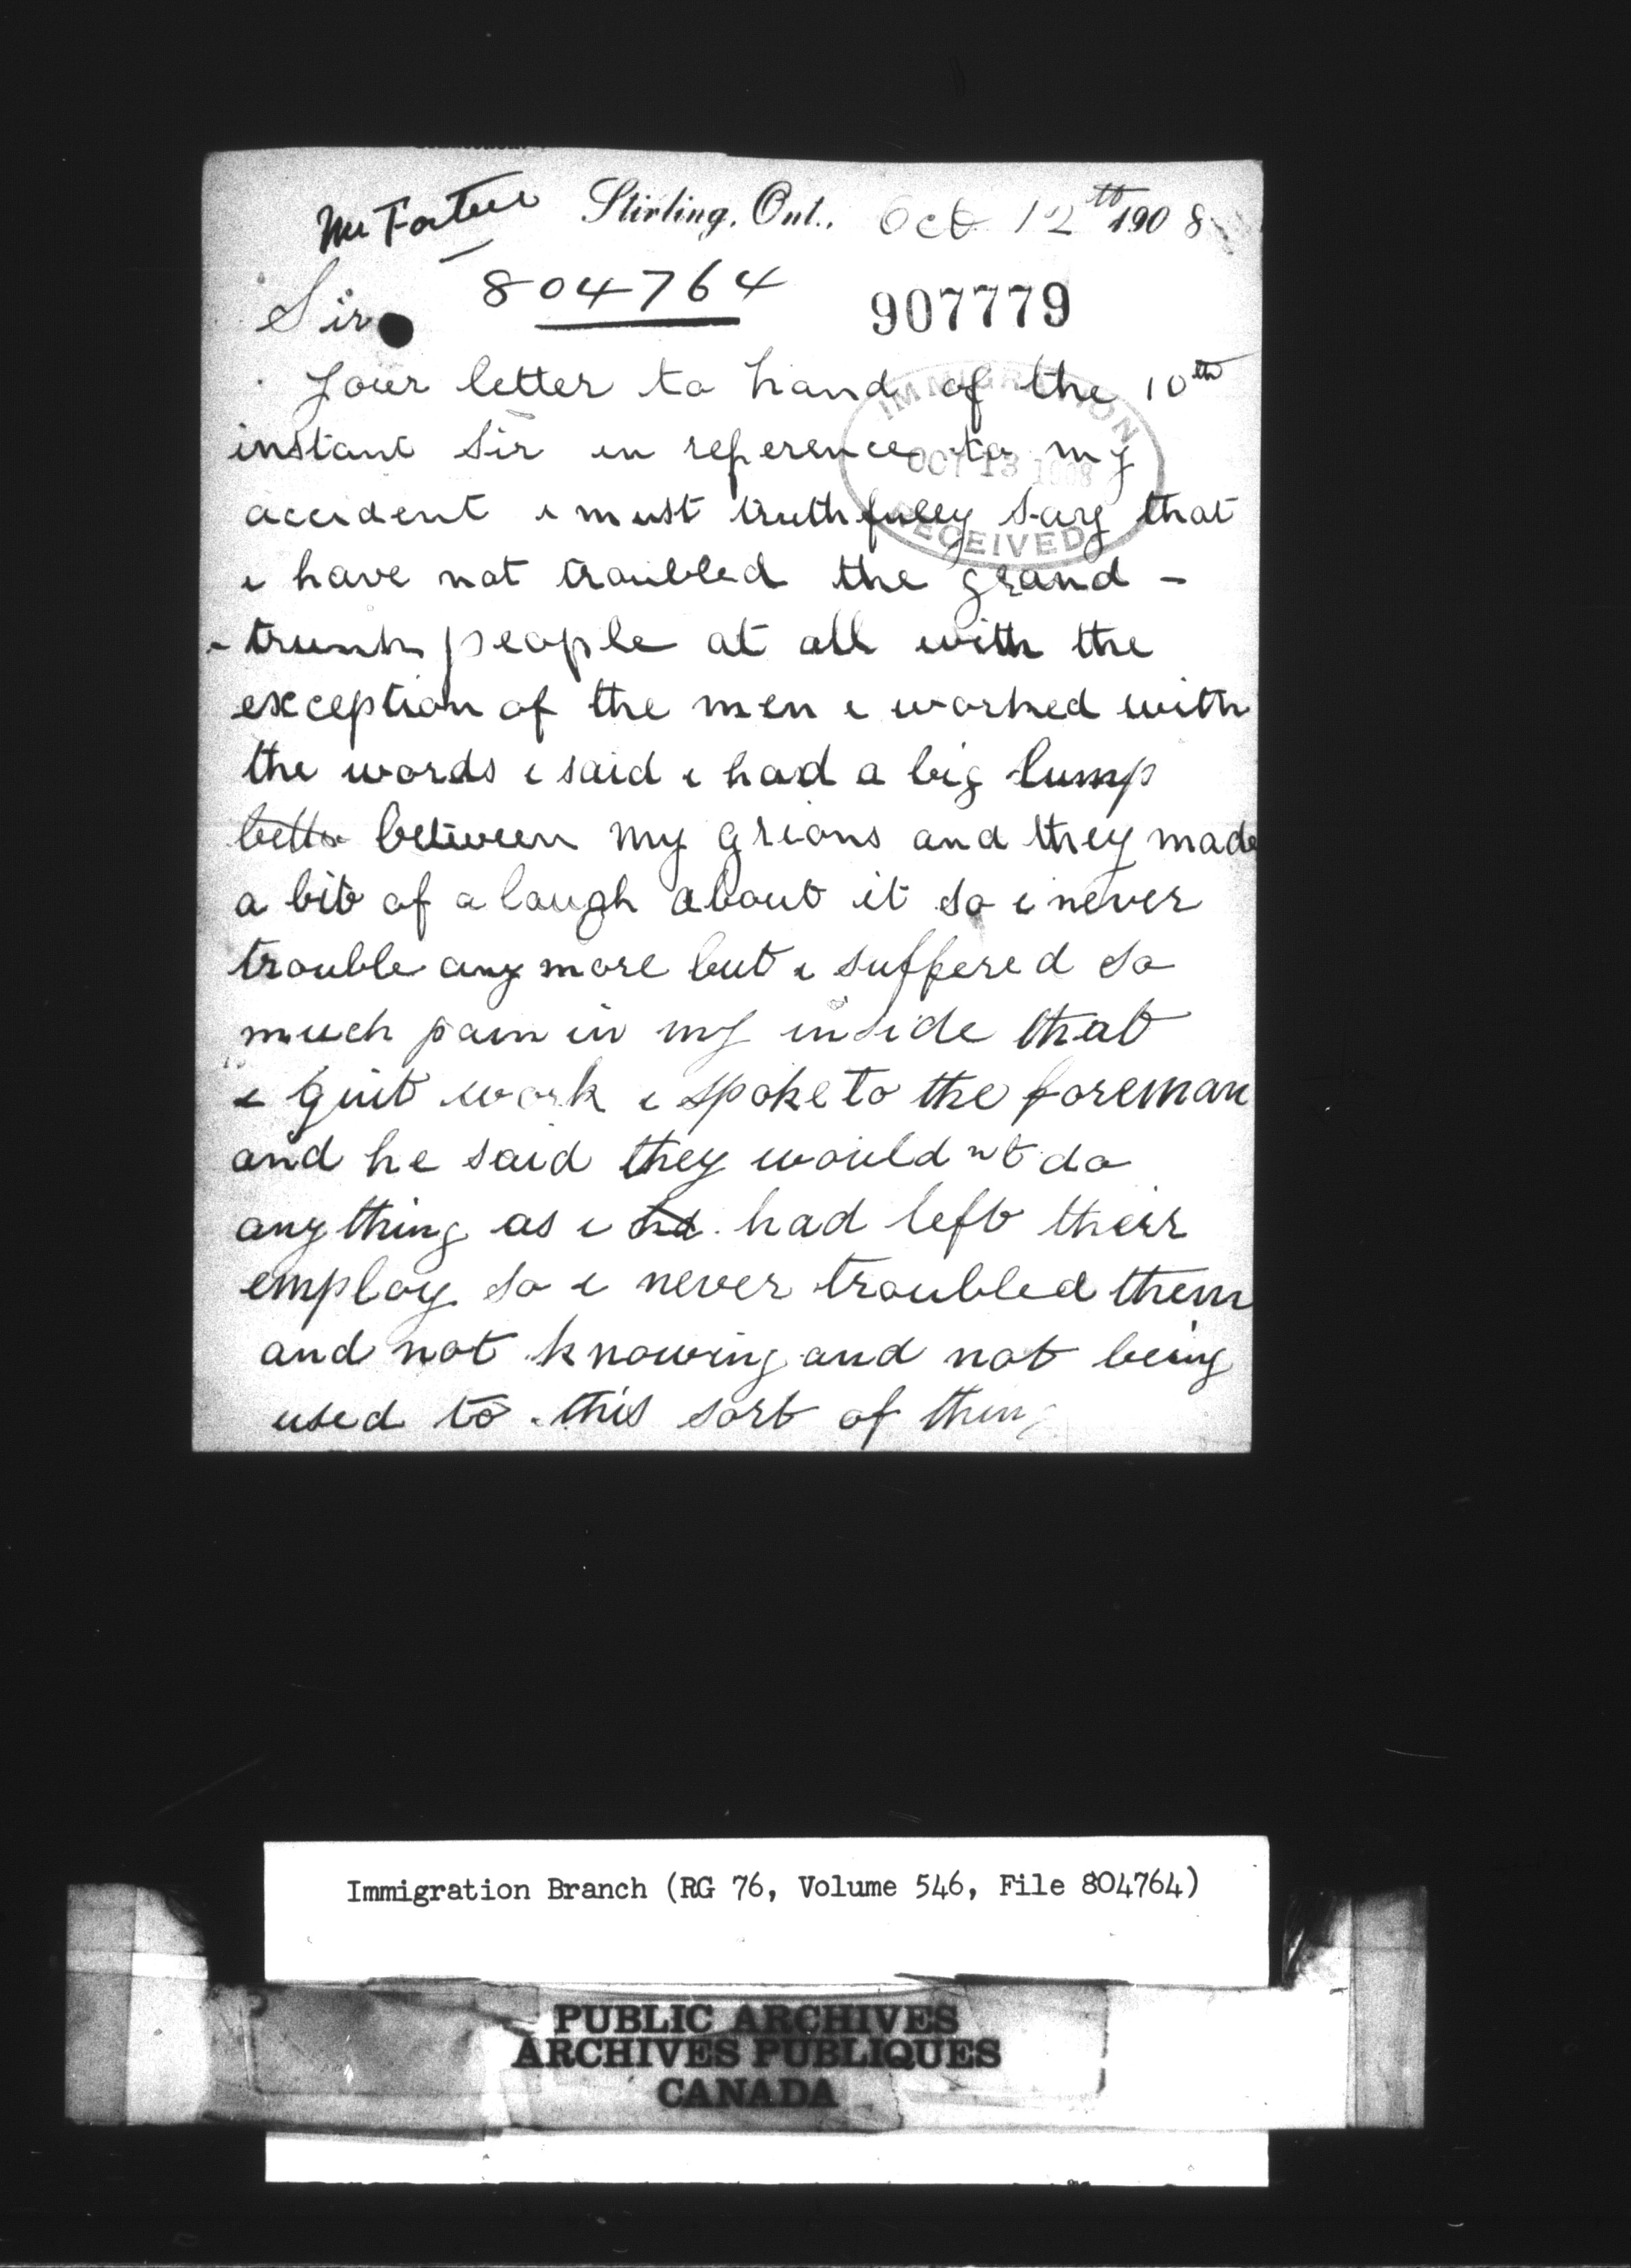 Mr Fortier Stirling, Ont., Oct 12th 1908
804764
907779
Sir
Your letter to hand of the 10th
IMMIGRATION
OCT 13 1908
RECEIVED
instant Sir in reference to my
accident i must truthfully say that
i have not troubled the grand -
- trunk people at all with the
exception of the men i worked with
the words i said i had a big lump
between my grions and they made
a bit of a laugh about it so i never
trouble any more but i suffered so
much pain in my inside that
i quit work i spoke to the foreman
and he said they would nt do
any thing as i hd had left their
employ so i never troubled them
and not knowing and not being
used to this sort of thing
Immigration Branch (RG 76, Volume 546, File 804764)
PUBLIC ARCHIVES
ARCHIVES PUBLIQUES
CANADA